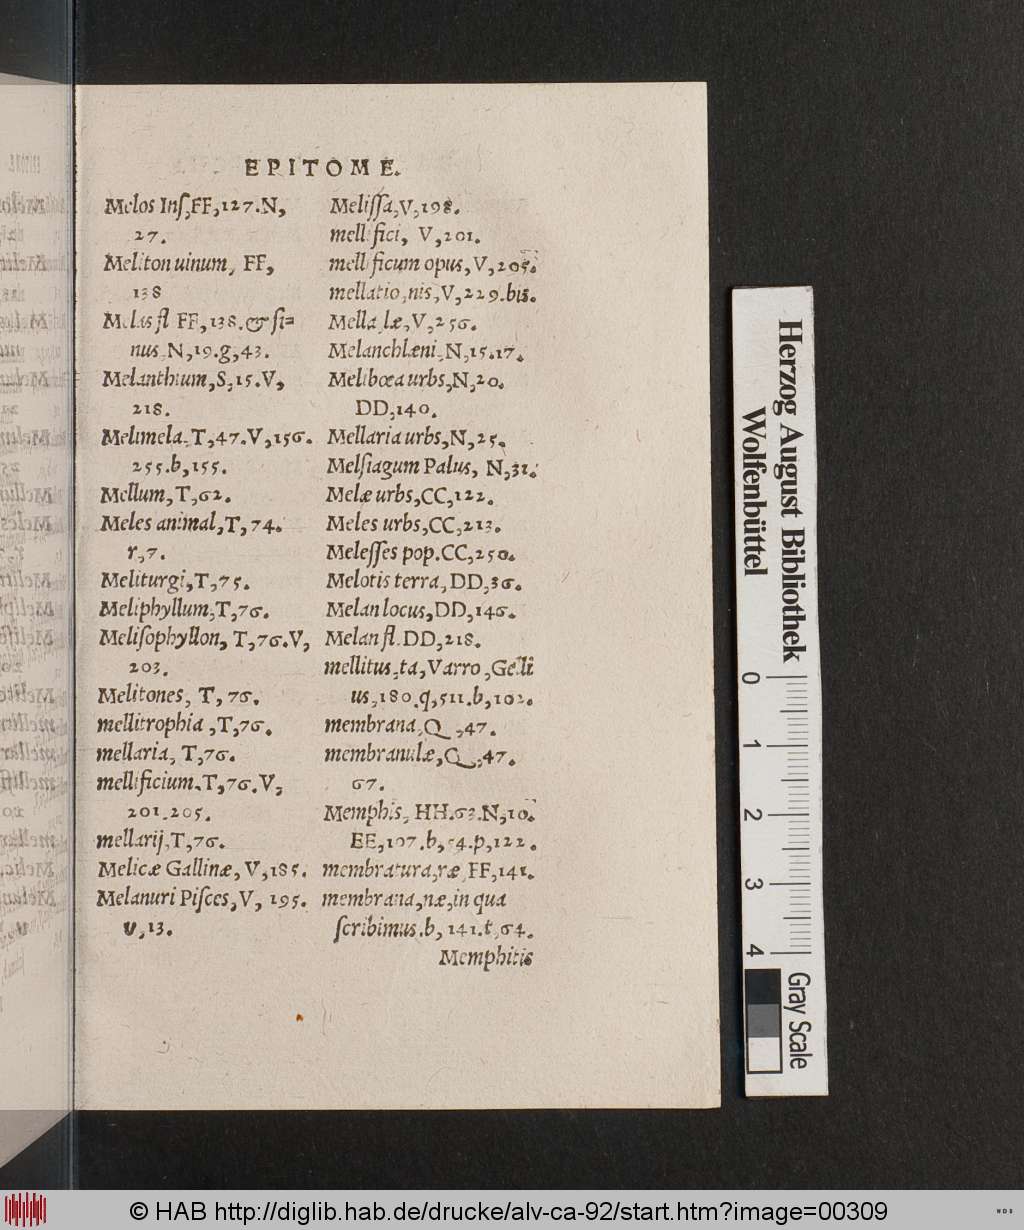 EPITOME.
Melos Inſ, FF, 127. N,
27.
Meliton uinum, FF,
138
Melas fl FF, 138. & ſi=
nus, N, 19. g, 43.
Melanthium, S, 15. V,
218.
Melimela, T, 47. V, 156.
255. b, 155.
Mellum, T, 62.
Meles animal, T, 74.
r, 7.
Meliturgi, T, 75.
Meliphyllum, T, 76.
Meliſophyllon, T, 76. V,
203.
Melitones, T, 76.
mellitrophia, T, 76.
mellaria, T, 76.
mellificium, T, 76. V,
201. 205.
mellarij, T, 76.
Melicæ Gallinæ, V, 185.
Melanuri Piſces, V, 195.
v, 13.
Meliſſa, V, 198.
mellifici, V, 201.
mellificum opus, V, 205.
mellatio, nis, V, 229. bis.
Mella, læ, V, 256.
Melanchlæni, N, 15. 17.
Melibœa urbs, N, 20.
DD, 140.
Mellaria urbs, N, 25.
Melſiagum Palus, N, 31.
Melæ urbs, CC, 122.
Meles urbs, CC, 213.
Meleſſes pop. CC, 250.
Melotis terra, DD, 36.
Melan locus, DD, 146.
Melan fl. DD, 218.
mellitus, ta, Varro, Gelli
us, 180. q, 511. b, 102.
membrana, Q, 47.
membranulæ, Q, 47.
67.
Memphis, HH. 63. N, 10.
EE, 107. b, 54. p, 122.
membratura, ræ, FF, 141.
membrana, næ, in qua
ſcribimus. b, 141. t, 64.
Memphitis
Herzog August Bibliothek
Wolfenbüttel
0 1 2 3 4
Gray Scale
© HAB http://diglib.hab.de/drucke/alv-ca-92/start.htm?image=00309